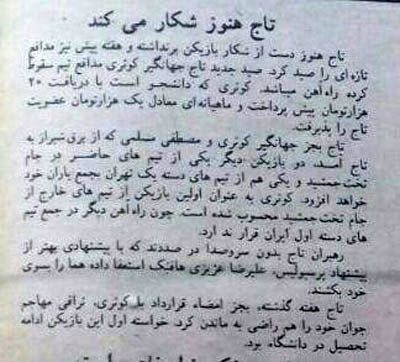 تاج هنوز شکار می کند
تاج هنوز دست از شکار بازیکن برنداشته و هفته پیش نیز مدافع
تازه‌ای را صید کرد. صید جدید تاج جهانگیر کوثری مدافع تیم سقوط
کرده راه‌آهن میباشد. کوثری که دانشجو است با دریافت ۲۰
هزارتومان پیش پرداخت و ماهیانه‌ای معادل یک هزارتومان عضویت
تاج را پذیرفت.
تاج بجز جهانگیر کوثری و مصطفی مسلمی که از برق‌شیراز به
تاج آمد، دو بازیکن دیگر یکی از تیم های حاضر در جام
تخت‌جمشید و یکی هم از تیم های دسته یک تهران بجمع یاران خود
خواهد افزود. کوثری به عنوان اولین بازیکن از تیم های خارج از
جام تخت‌جمشید محسوب شده است. چون راه‌آهن دیگر در جمع تیم
های دسته اول ایران قرار ندارد.
رهبران تاج بدون سروصدا در صددند که با پیشنهادی بهتر از
پیشنهاد پرسپولیس، علیرضا عزیزی هافبک استعفا داده هما را بسوی
خود بکشند.
تاج هفته گذشته، بجز امضاء قرارداد با کوثری، تراقی مهاجم
جوان خود را هم راضی به ماندن کرد. خواسته اول این بازیکن ادامه
تحصیل در دانشگاه بود.